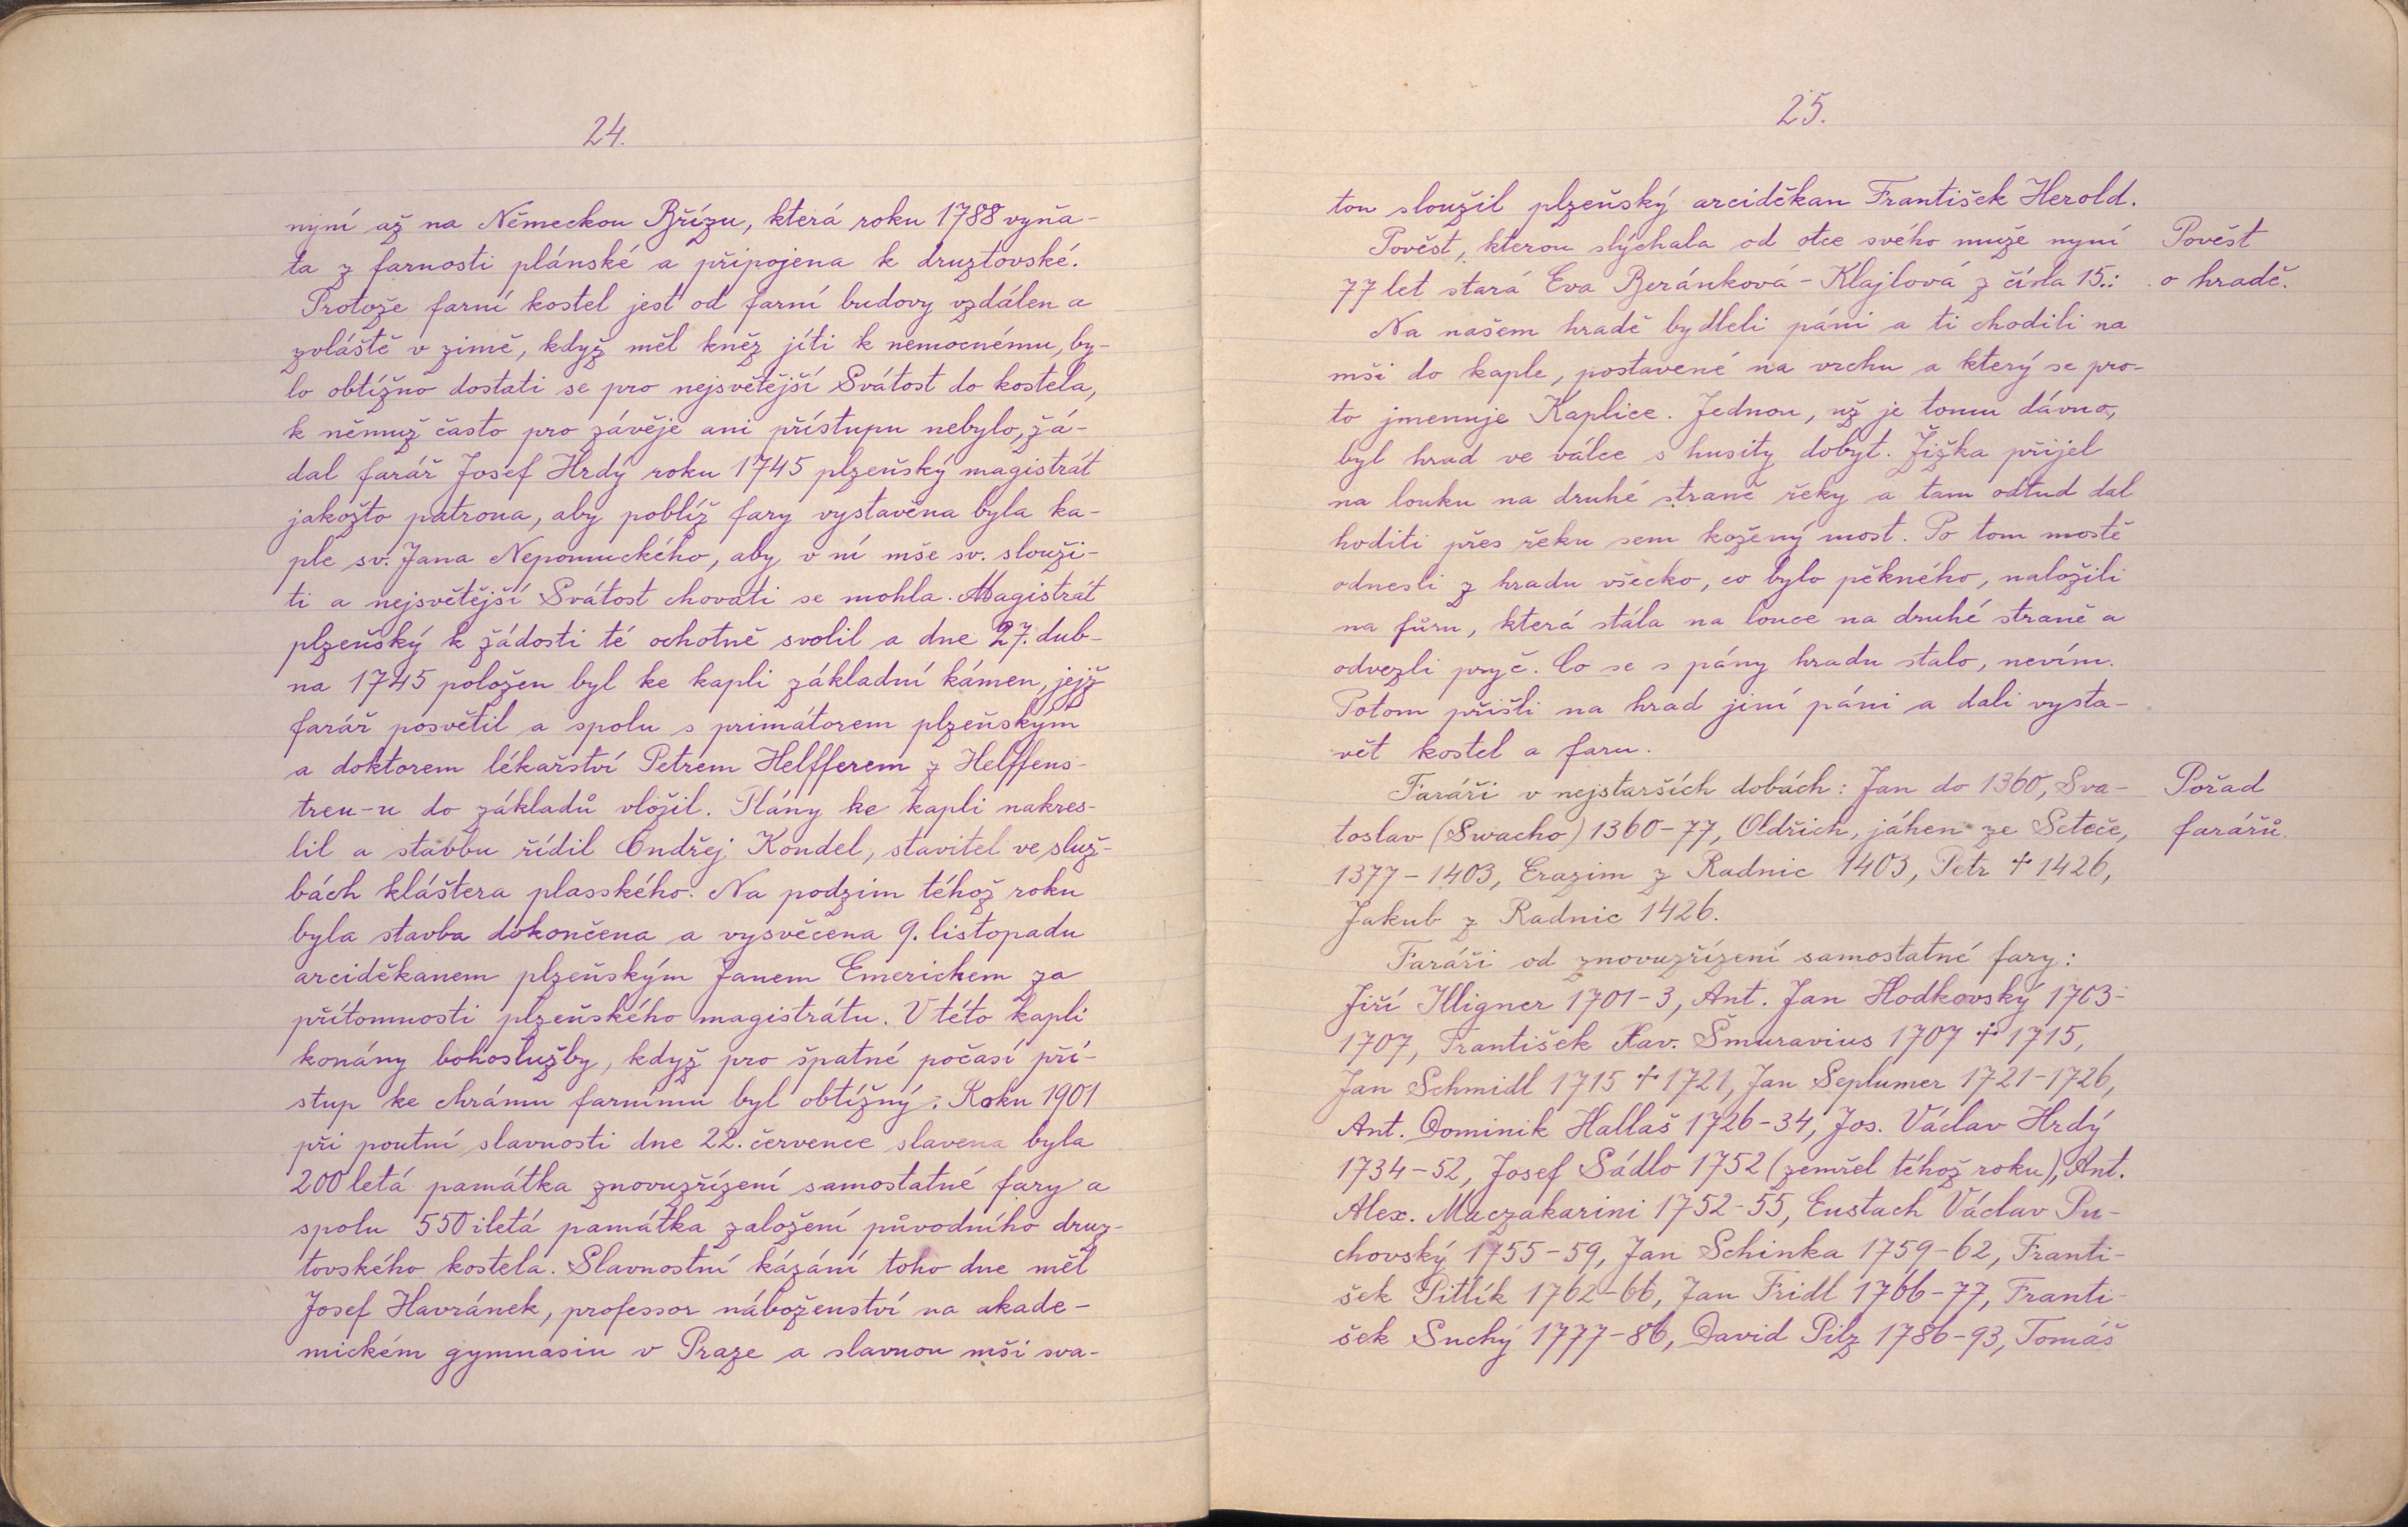 24.
nyní až na Německou Břízu, která roku 1788 vyňa-
ta z farnosti plánské a připojena k druztovské.
Protože farní kostel jest od farní budovy vzdálen a
zvláště v zimě, když měl kněz jíti k nemocnému, by-
lo obtížno dostati se pro nejsvětější Svátost do kostela,
k němuž často pro závěje ani přístupu nebylo, žá-
dal farář Josef Hrdý roku 1745 plzeňský magistrát
jakožto patrona, aby poblíž fary vystavěna byla ka-
ple sv. Jana Nepomuckého, aby v ní mše sv. slouži-
ti a nejsvětější Svátost chovati se mohla. Magistrát
plzeňský k žádosti té ochotně svolil a dne 27. dub-
na 1745 položen byl ke kapli základní kámen, jejž
farář posvětil a spolu s primátorem plzeňským
a doktorem lékařství Petrem Helfferem z Helffens-
treu-u do základů vložil. Plány ke kapli nakres-
lil a stavbu řídil Ondřej Kondel, stavitel ve služ-
bách kláštera plasského. Na podzim téhož roku
byla stavba dokončena a vysvěcena 9. listopadu
arciděkanem plzeňským Janem Emerichem za
přítomnosti plzeňského magistrátu. V této kapli
konány bohoslužby, když pro špatné počasí pří-
stup ke chrámu farnímu byl obtížný. Roku 1901
při poutní slavnosti dne 22. července slavena byla
200letá památka znovuzřízení samostatné fary a
spolu 550iletá památka založení původního druz-
tovského kostela. Slavnostní kázání toho dne měl
Josef Havránek, professor náboženství na akade-
mickém gymnasiu v Praze a slavnou mši sva-
25.
tou sloužil plzeňský arciděkan František Herold.
Pověst, kterou slýchala od otce svého muže nyní
77 let stará Eva Beránková-Klajlová z čísla 15.:
Pověst
o hradě.
Na našem hradě bydleli páni a ti chodili na
mši do kaple, postavené na vrchu a který se pro-
to jmenuje Kaplice. Jednou, už je tomu dávno,
byl hrad ve válce s husity dobyt. Žižka přijel
na louku na druhé straně řeky a tam odtud dal
hoditi přes řeku sem kožený most. Po tom mostě
odnesli z hradu všecko, co bylo pěkného, naložili
na fůru, která stála na louce na druhé straně a
odvezli pryč. Co se s pány hradu stalo, nevím.
Potom přišli na hrad jiní páni a dali vysta-
vět kostel a faru.
Faráři v nejstarších dobách: Jan do 1360, Sva-
toslav (Swacho) 1360-77, Oldřich, jáhen ze Seteče,
Pořad
farářů.
1377-1403, Erazim z Radnic 1403, Petr † 1426,
Jakub z Radnic 1426.
Faráři od znovuzřízení samostatné fary:
Jiří Illigner 1701-3, Ant. Jan Hodkovský 1703-
1707, František Xav. Šmuravius 1707 † 1715,
Jan Schmidl 1715 † 1721, Jan Seplumer 1721-1726,
Ant. Dominik Hallaš 1726-34, Jos. Václav Hrdý
1734-52, Josef Sádlo 1752 (zemřel téhož roku), Ant.
Alex. Maczakarini 1752-55, Eustach Václav Pu-
chovský 1755-59, Jan Schinka 1759-62, Franti-
šek Pitlík 1762-66, Jan Fridl 1766-77, Franti-
šek Suchý 1777-86, David Pilz 1786-93, Tomáš